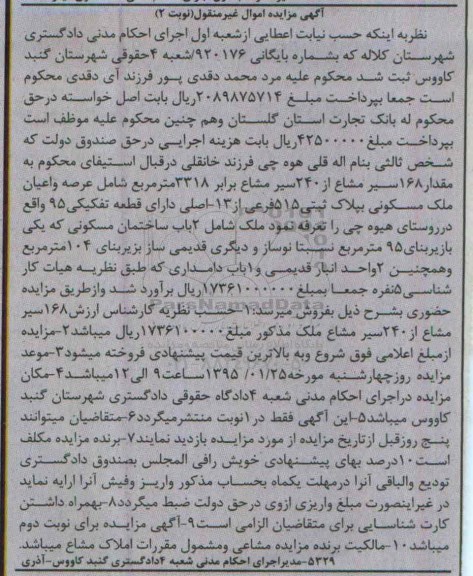 آگهی مزایده اموال غیرمنقول(نوبت ۲)
نظربه اینکه حسب نیابت اعطایی ازشعبه اول اجرای احکام مدنی دادگستری
شهرستان کلاله که بشماره بایگانی ۹۲۰۱۷۶/شعبه ۴حقوقی شهرستان گنبد
کاووس ثبت شد محکوم علیه مرد محمد دقدی پور فرزند آی دقدی محکوم
است جمعا بپرداخت مبلغ ۲۰۸۹۸۷۵۷۱۴ریال بابت اصل خواسته درحق
محکوم له بانک تجارت استان گلستان وهم چنین محکوم علیه موظف است
بپرداخت مبلغ۴۲۵۰۰۰۰۰ریال بابت هزینه اجرایی درحق صندوق دولت که
شخص ثالثی بنام اله قلی هوه چی فرزند خانقلی درقبال استیفای محکوم به
مقدار۱۶۸سیر مشاع از۲۴۰سیر مشاع برابر ۳۳۱۸مترمربع شامل عرصه واعیان
ملک مسکونی بپلاک ثبتی۵۱۵فرعی از۱۳-اصلی دارای قطعه تفکیکی۹۵ واقع
درروستای هیوه چی را تعرفه نمود ملک شامل ۲باب ساختمان مسکونی که یکی
بازیربنای۹۵ مترمربع نسبتا نوساز و دیگری قدیمی ساز بزیربنای ۱۰۴مترمربع
وهمچنین ۲واحد انبار قدیمی و۱باب دامداری که طبق نظریه هیات کار
شناسی۵نفره جمعا بمبلغ۱۷۳۶۱۰۰۰۰۰ریال برآورد شد وازطریق مزایده
حضوری بشرح ذیل بفروش میرسد:۱-حسب نظریه کارشناس ارزش۱۶۸سیر
مشاع از۲۴۰سیر مشاع ملک مذکور مبلغ۱۷۳۶۱۰۰۰۰۰ریال میباشد۲-مزایده
ازمبلغ اعلامی فوق شروع وبه بالاترین قیمت پیشنهادی فروخته میشود۳-موعد
مزایده روزچهارشنبه مورخه۱۳۹۵/۰۱/۲۵ساعت۹ الی۱۲میباشد۴-مکان
مزایده دراجرای احکام مدنی شعبه ۴دادگاه حقوقی دادگستری شهرستان گنبد
کاووس میباشد۵-این آگهی فقط در۱نوبت منتشرمیگردد۶-متقاضیان میتوانند
پنج روزقبل ازتاریخ مزایده از مورد مزایده بازدید نمایند۷-برنده مزایده مکلف
است۱۰درصد بهای پیشنهادی خویش رافی المجلس بصندوق دادگستری
تودیع والباقی آنرا درمهلت یکماه بحساب مذکور واریز وفیش آنرا ارایه نماید
در غیراینصورت مبلغ واریزی ازوی درحق دولت ضبط میگردد۸-بهمراه داشتن
کارت شناسایی برای متقاضیان الزامی است۹-آگهی مزایده برای نوبت دوم
میباشد۱۰-مالکیت برنده مزایده مشاعی ومشمول مقررات املاک مشاع میباشد.
۵۳۲۹-مدیراجرای احکام مدنی شعبه ۴دادگستری گنبد کاووس-آذری